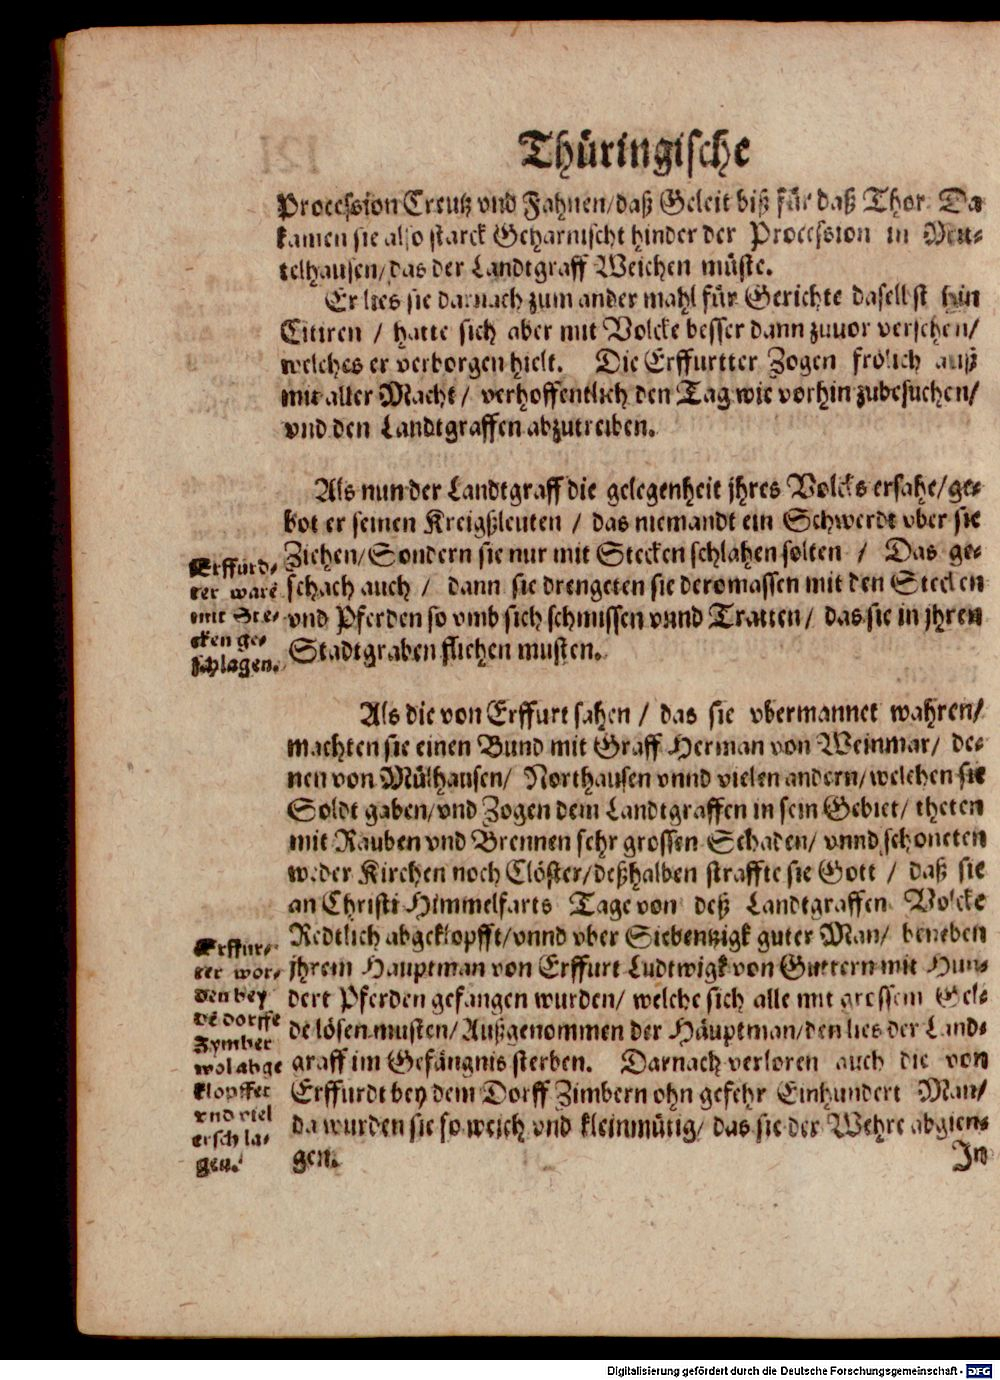 Thüringische
Procession Creutz vnd Fahnen/ daß Geleit biß für daß Thor. Da
kamen sie also starck Geharnischt hinder der Procession in Meu-
telhausen/ das der Landtgraff Weichen müste.
Er lies sie darnach zum ander mahl für Gerichte daselbst hin
Citiren / hatte sich aber mit Volcke besser dann zuuor versehen/
welches er verborgen hielt. Die Erffurtter Zogen frölich auß
mit aller Macht / verhoffentlich den Tag wie vorhin zubesuchen/
vnd den Landtgraffen abzutreiben.
Als nun der Landtgraff die gelegenheit jhres Volcks ersahe/ ge-
bot er seinen Kreigßleuten / das niemandt ein Schwerdt vber sie
Ziehen/ Sondern sie nur mit Stecken schlahen solten / Das ge-
schach auch / dann sie drengeten sie deromassen mit den Stecken
vnd Pferden so vmb sich schmissen vnnd Tratten/ das sie in jhren
Stadtgraben fliehen musten.
Erffurd-
ter warē
mit Ste-
cken ge-
schlagen.
Als die von Erffurt sahen / das sie vbermannet wahren/
machten sie einen Bund mit Graff Herman von Weinmar/ de-
nen von Mülhausen/ Northausen vnnd vielen andern/ welchen sie
Soldt gaben/ vnd Zogen dem Landtgraffen in sein Gebiet/ theten
mit Rauben vnd Brennen sehr grossen Schaden/ vnnd schoneten
weder Kirchen noch Clöster/ deßhalben straffte sie Gott / daß sie
an Christi Himmelfarts Tage von deß Landtgraffen Volcke
Redtlich abgeklopfft/ vnnd vber Siebentzigk guter Man/ beneben
jhrem Hauptman von Erffurt Ludtwigk von Guttern mit Hun-
dert Pferden gefangen wurden/ welche sich alle mit grossem Gel-
de lösen musten/ Außgenommen der Häuptman/ den lies der Land-
graff im Gefängnis sterben. Darnach verloren auch die von
Erffurdt bey dem Dorff Zimbern ohn gefehr Einhundert Man/
da wurden sie so weich vnd kleinmütig/ das sie der Wehre abgien-
gen.
Erffur-
ter wor-
den bey
dē dorffe
Zymber
wol abge
klopffet
vnd viel
erschla-
gen.
In
Digitalisierung gefördert durch die Deutsche Forschungsgemeinschaft - DFG